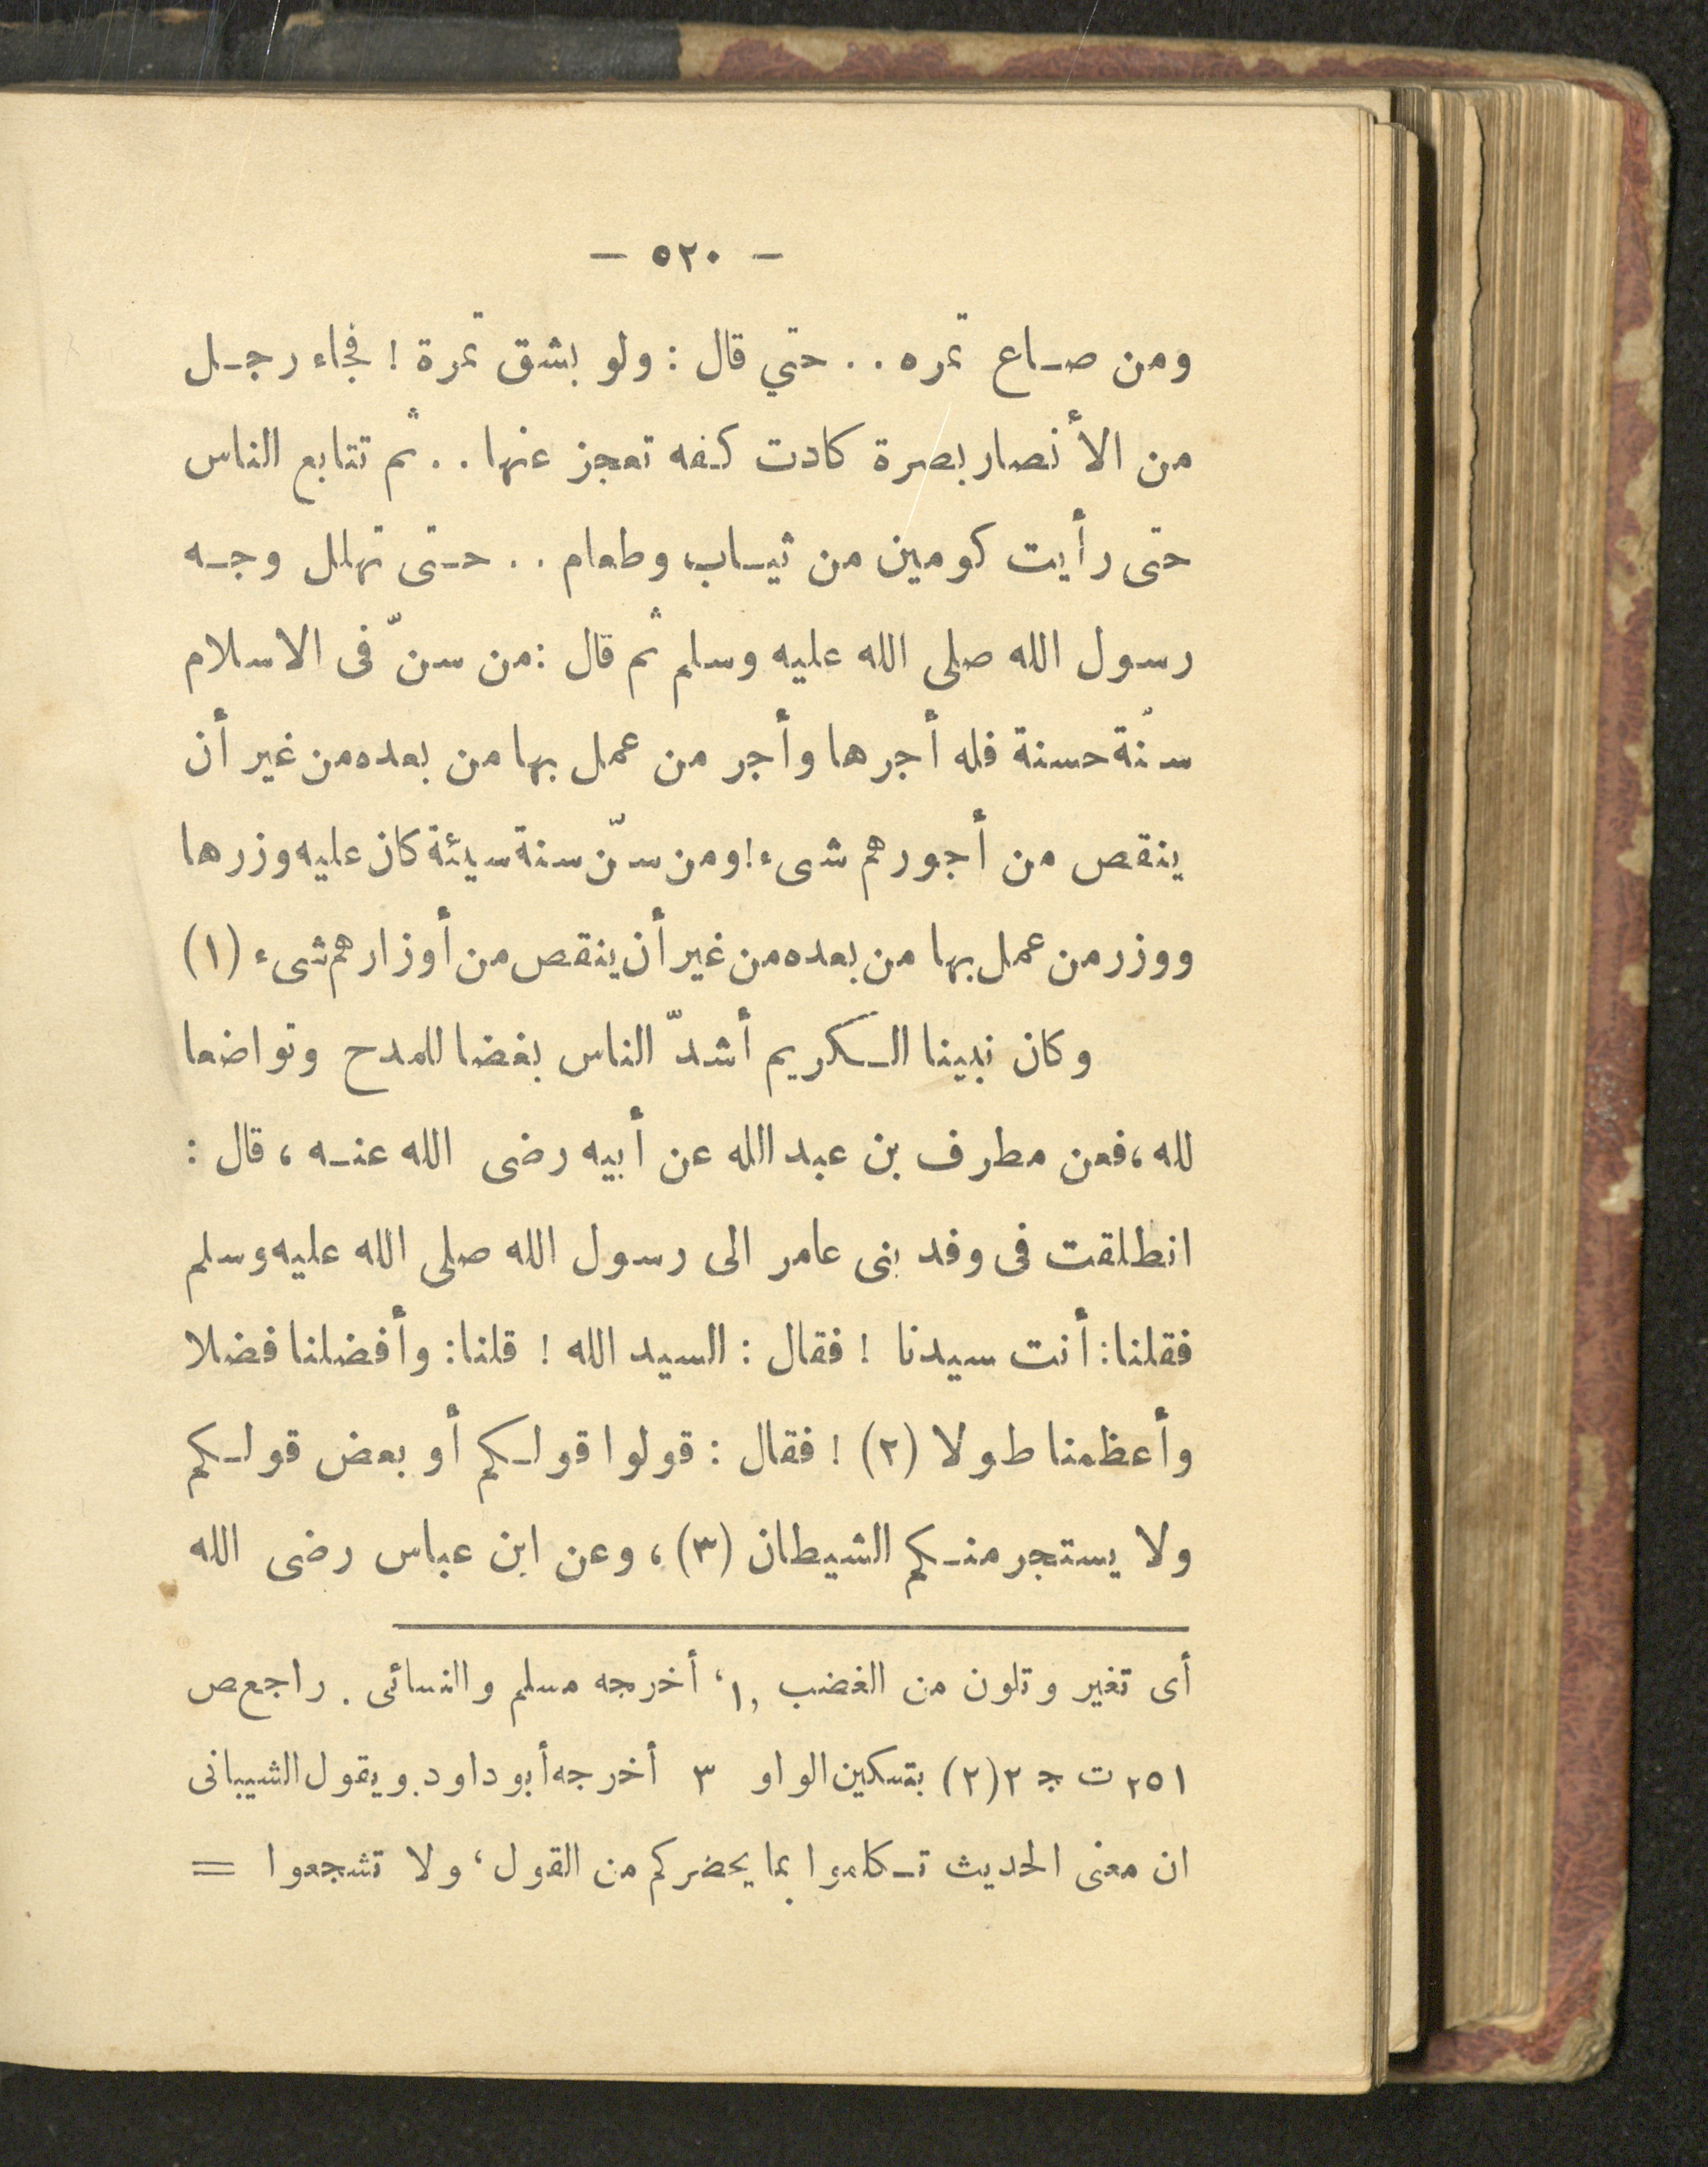 — ٥٢٠ —
ومن صاع تمره .. حتي قال : ولو بشق تمرة ! فجاء رجل
من الأنصار بصرة كادت كفه تعجز عنها .. ثم تتابع الناس
حتى رأيت كومين من ثياب وطعام .. حتى تهلل وجه
رسول الله صلى الله عليه وسلم ثم قال : من سنّ فى الاسلام
سنُة حسنة فله أجرها وأجر من عمل بها من بعده من غير أن
ينقص من أجورهم شىء ! ومن سنّ سنة سيئة كان عليه وزرها
ووزر من عمل بها من بعده من غير أن ينقص من أوزارهم شىء (١)
وكان نبينا الكريم أشدّ الناس بغضا للمدح وتواضعا
لله ، فعن مطرف بن عبد الله عن أبيه رضى الله عنه ، قال :
انطلقت فى وفد بنى عامر الى رسول الله صلى الله عليه وسلم
فقلنا : أنت سيدنا ! فقال : السيد الله ! قلنا : وأفضلنا فضلا
وأعظمنا طولا (٢) ! فقال : قولوا قولكم أو بعض قولكم
ولا يستجر منكم الشيطان (٣) ، وعن ابن عباس رضى الله
أى تغير وتلون من الغضب ,١، أخرجه مسلم والنسائى . راجع ص
٢٥١ ت ج ٢ (٢) بتسكين الواو ٣ أخرجه أبو داود. ويقول الشيبانى
ان معنى الحديث تكلموا بما يحضركم من القول ، ولا تشجعوا =